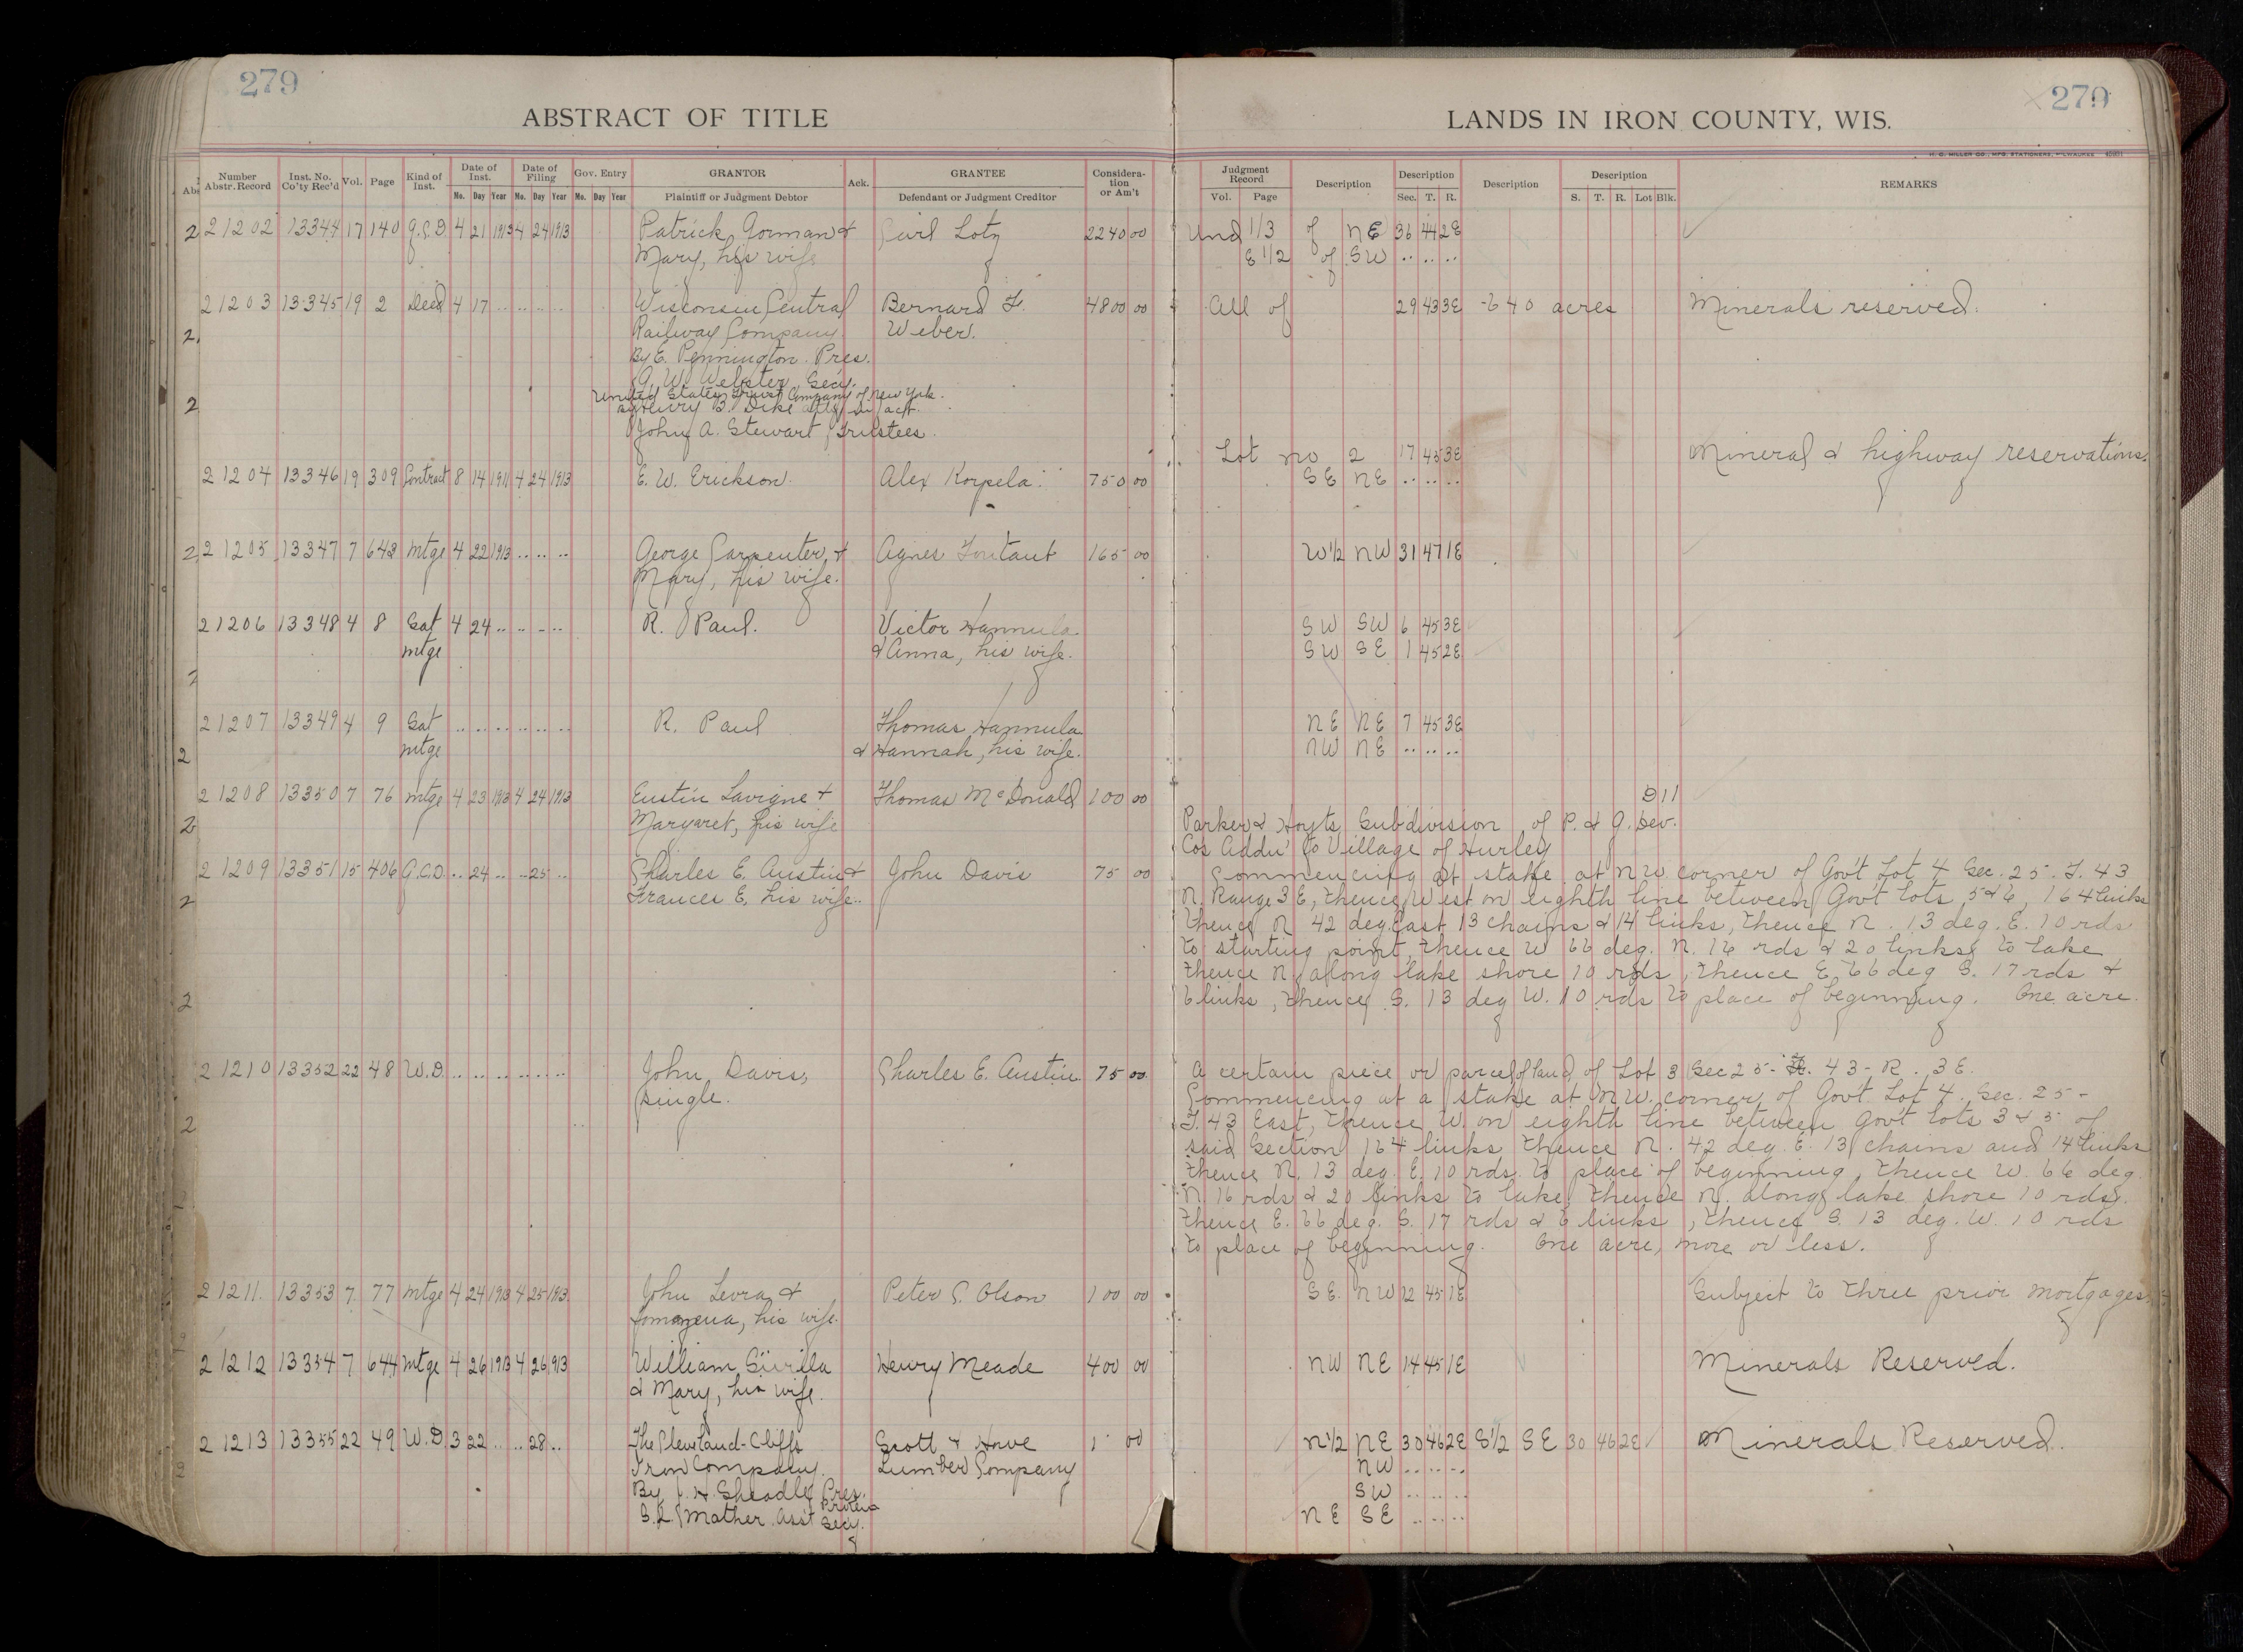 279
279
ABSTRACT OF TITLE
LANDS IN IRON COUNTY, WIS.
H. C. MILLER CO., MFG. STATIONERS, MILWAUKEE
Number Abstr. Record | Inst. No. Co'ty Rec'd | Vol. | Page | Kind of Inst. | Date of Inst. Mo. Day Year | Date of Filing Mo. Day Year | Gov. Entry Mo. Day Year | GRANTOR Plaintiff or Judgment Debtor | Ack. | GRANTEE Defendant or Judgment Creditor | Consideration or Am't | Judgment Record Vol. Page | Description | Description Sec. T. R. | Description | Description S. T. R. Lot Blk. | REMARKS
21202 13344 17 140 Q.C.D. 4 21 1913 4 24 1913 Patrick Gorman & Lotz 2240 00 Und 1/3 of NE 36 44 2E
Mary, his wife E 1/2 of SW .. .. ..
21203 13345 19 2 Deed 4 17 .. .. .. .. Wisconsin Central Bernard F. 4800 00 All of 29 43 3E - 640 acres Minerals reserved.
Railway Company Weber.
By E. Pennington Pres.
G. W. Webster Secy.
United States Trust Company of New York.
By Henry B. Dike atty in act
John A. Stewart Trustees.
Lot no 2 17 45 3E Mineral & highway reservations.
21204 13346 19 309 Contract 8 14 1911 4 24 1913 E. W. Erickson. Alex Korpela 750 00 SE NE .. .. ..
21205 13347 7 643 Mtge 4 22 1913 .. .. .. George Carpenter & Agnes Fontaut 165 00 W1/2 NW 31 47 1E
Mary, his wife.
21206 13348 4 8 Sat 4 24 .. .. .. .. R. Paul. Victor Hannula SW SW 6 45 3E
mtge & Anna, his wife. SW SE 1 45 2E
21207 13349 4 9 Sat .. .. .. .. .. .. R. Paul Thomas Hannula NE NE 7 45 3E
mtge & Hannah, his wife. NW NE .. .. ..
21208 13350 7 76 mtge 4 23 1913 4 24 1913 Eustin Lavigne & Thomas McDonald 100 00 D 11
Margaret, his wife Parker & Hoyts Subdivision of P. & G. Dev.
Cos Addn' to Village of Hurley
21209 13351 15 406 Q.C.D. .. 24 .. .. 25 .. Charles E. Austin & John Davis 75 00 Commencing at stake at NW corner of Gov't Lot 4 Sec. 25. T. 43
Frances E. his wife.. N. Range 3 E, thence West on eighth line between Gov't Lots 5 & 6, 164 links
thence N 42 deg. East 13 chains & 14 links, thence N. 13 deg. E. 10 rds
to starting point, thence W 66 deg. N. 16 rds & 20 links to lake
thence N. along lake shore 10 rds, thence E, 66 deg S. 17 rds &
6 links, thence S. 13 deg W. 10 rds to place of beginning. One acre.
21210 13352 22 48 W.D. .. .. .. .. .. .. John Davis, Charles E. Austin 75 00 A certain piece or parcel of land of Lot 3 Sec 25 - T. 43 - R. 3E.
single. Commencing at a stake at NW. corner of Govt. Lot 4. Sec. 25 -
T. 43 East, thence W. on eighth line between Gov't lots 3 & 5 of
said Section 164 links thence N. 42 deg. E. 13 chains and 14 links
thence N. 13 deg. E. 10 rds. to place of beginning, thence W. 66 deg.
N. 16 rds & 20 links to lake, thence N. along lake shore 10 rds,
thence E. 66 deg. S. 17 rds & 6 links, thence S. 13 deg. W. 10 rds
to place of beginning. One acre, more or less.
21211. 13353 7 77 mtge 4 24 1913 4 25 1913 John Levra & Peter C. Olson 100 00 SE. NW 12 45 1E Subject to three prior mortgages.
his wife.
21212 13354 7 644 mtge 4 26 1913 4 26 1913 William Siirila Henry Meade 400 00 NW NE 14 45 1E Minerals Reserved.
& Mary, his wife.
21213 13355 22 49 W.D. 3 22 .. .. 28 .. The Cleveland-Cliffs Scott & Howe 1 00 N1/2 NE 30 46 2E S1/2 SE 30 46 2E Minerals Reserved.
Iron Company. Lumber Company NW .. .. ..
By J. H. Sheadle Pres. SW .. .. ..
S. L. Mather Asst Secy. NE SE .. .. ..